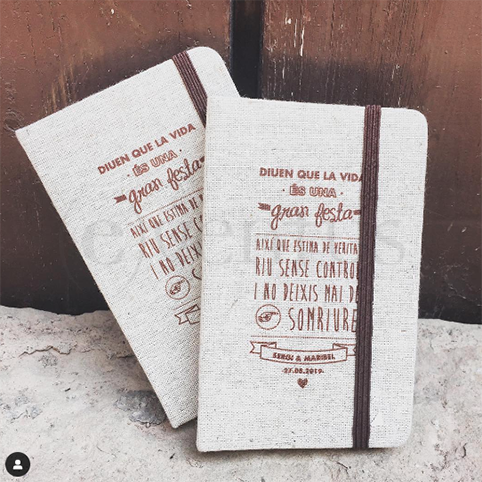 DIUEN QUE LA VIDA
· ÉS UNA ·
gran festa
AIXÍ QUE ESTIMA DE VERITAT
RIU SENSE CONTROL
I NO DEIXIS MAI DE
SOMRIURE
DIUEN QUE LA VIDA
· ÉS UNA ·
gran festa
AIXÍ QUE ESTIMA DE VERITAT
RIU SENSE CONTROL
I NO DEIXIS MAI DE
SOMRIURE
SERGI & MARIBEL
·27.08.2019·